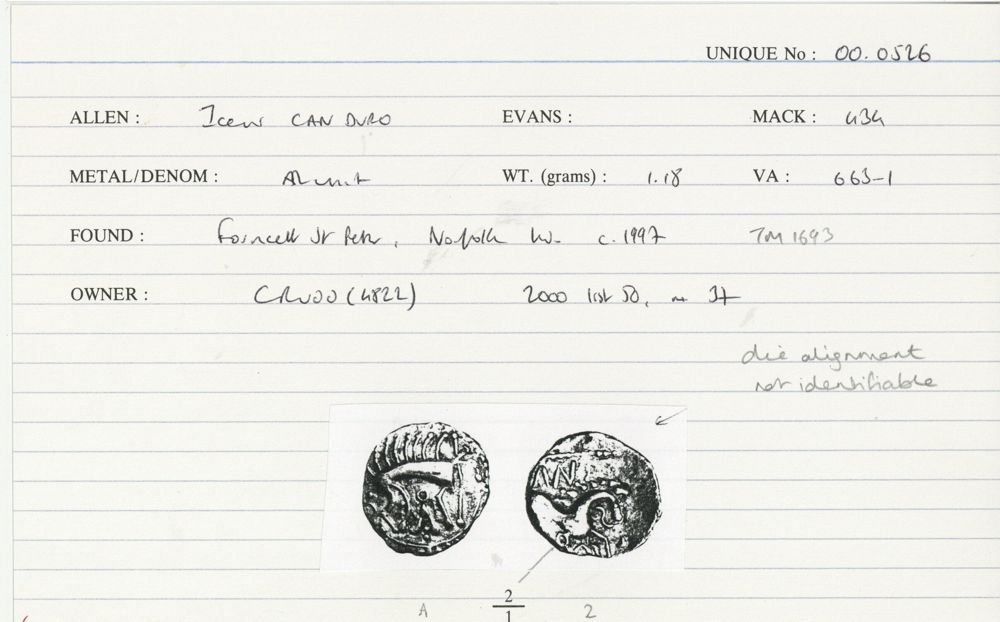 UNIQUE No : 00.0526
ALLEN : Iceni CAN DURO EVANS : MACK : 434
METAL/DENOM : AR unit WT. (grams) : 1.18 VA : 663-1
FOUND : Forncett St Peter, Norfolk c. 1997 TM 1693
OWNER : CR (4822) 2000 list 50, no 37
die alignment
not identifiable
2
A 1 2